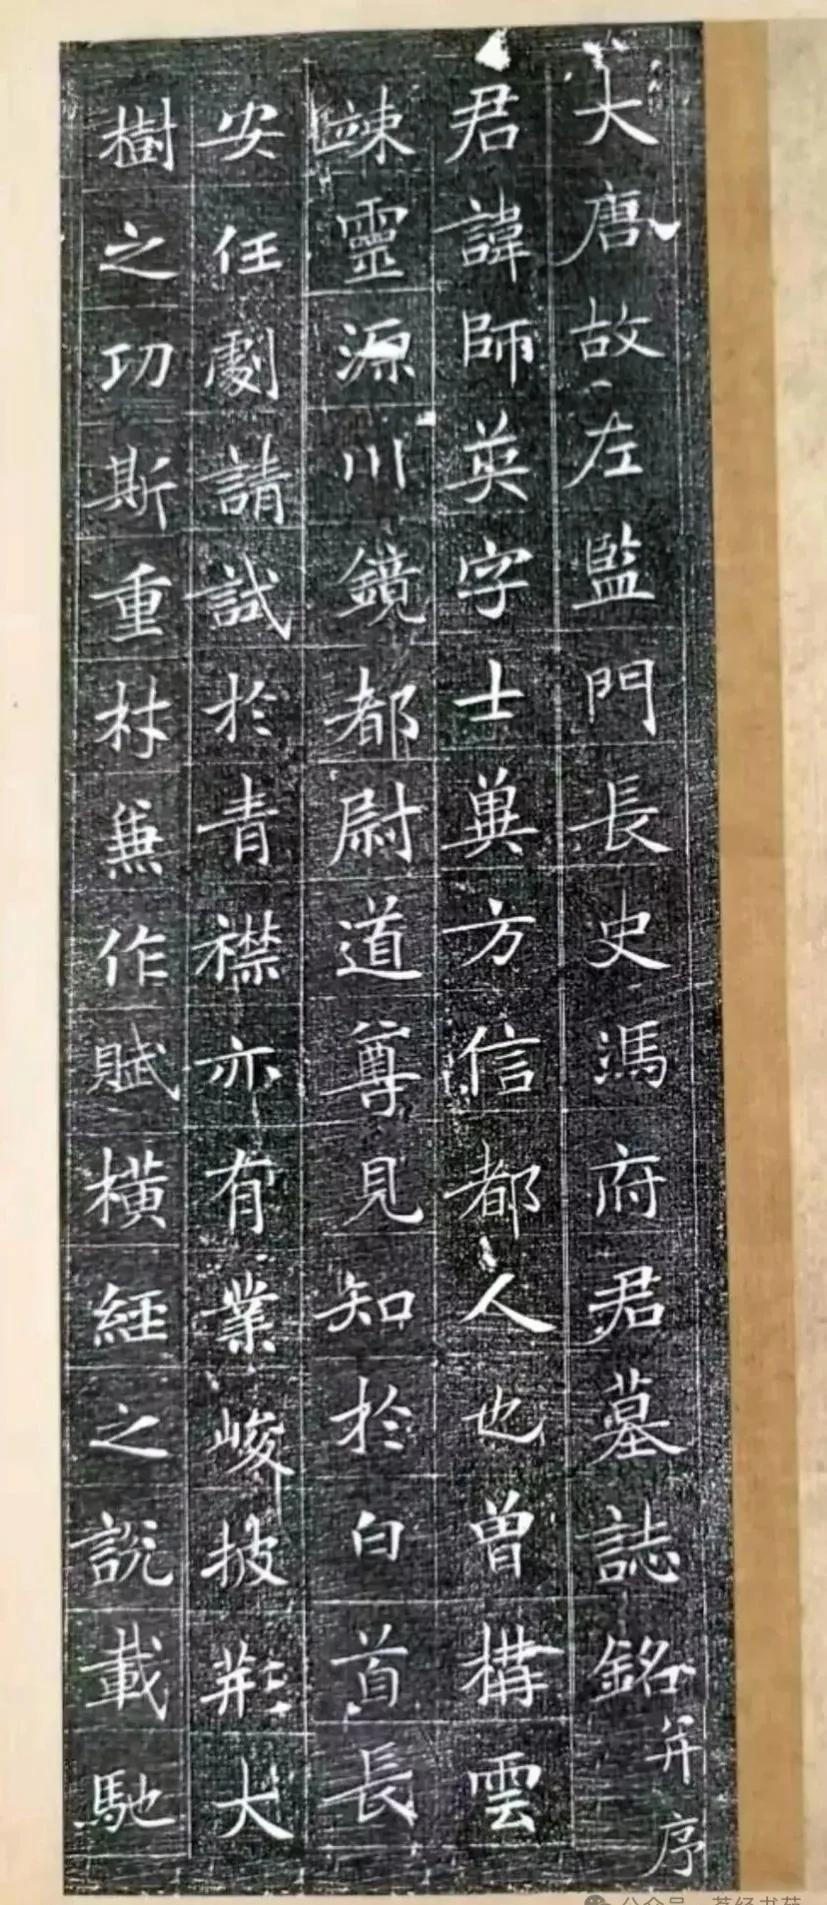 大唐故左監門長史馮府君墓誌銘并序
君諱師英字士冀方信都人也曾構雲
竦靈源川鏡都尉道尊見知於白首長
安任劇請試於青襟亦有業峻披荆大
樹之功斯重材兼作賦橫經之說載馳